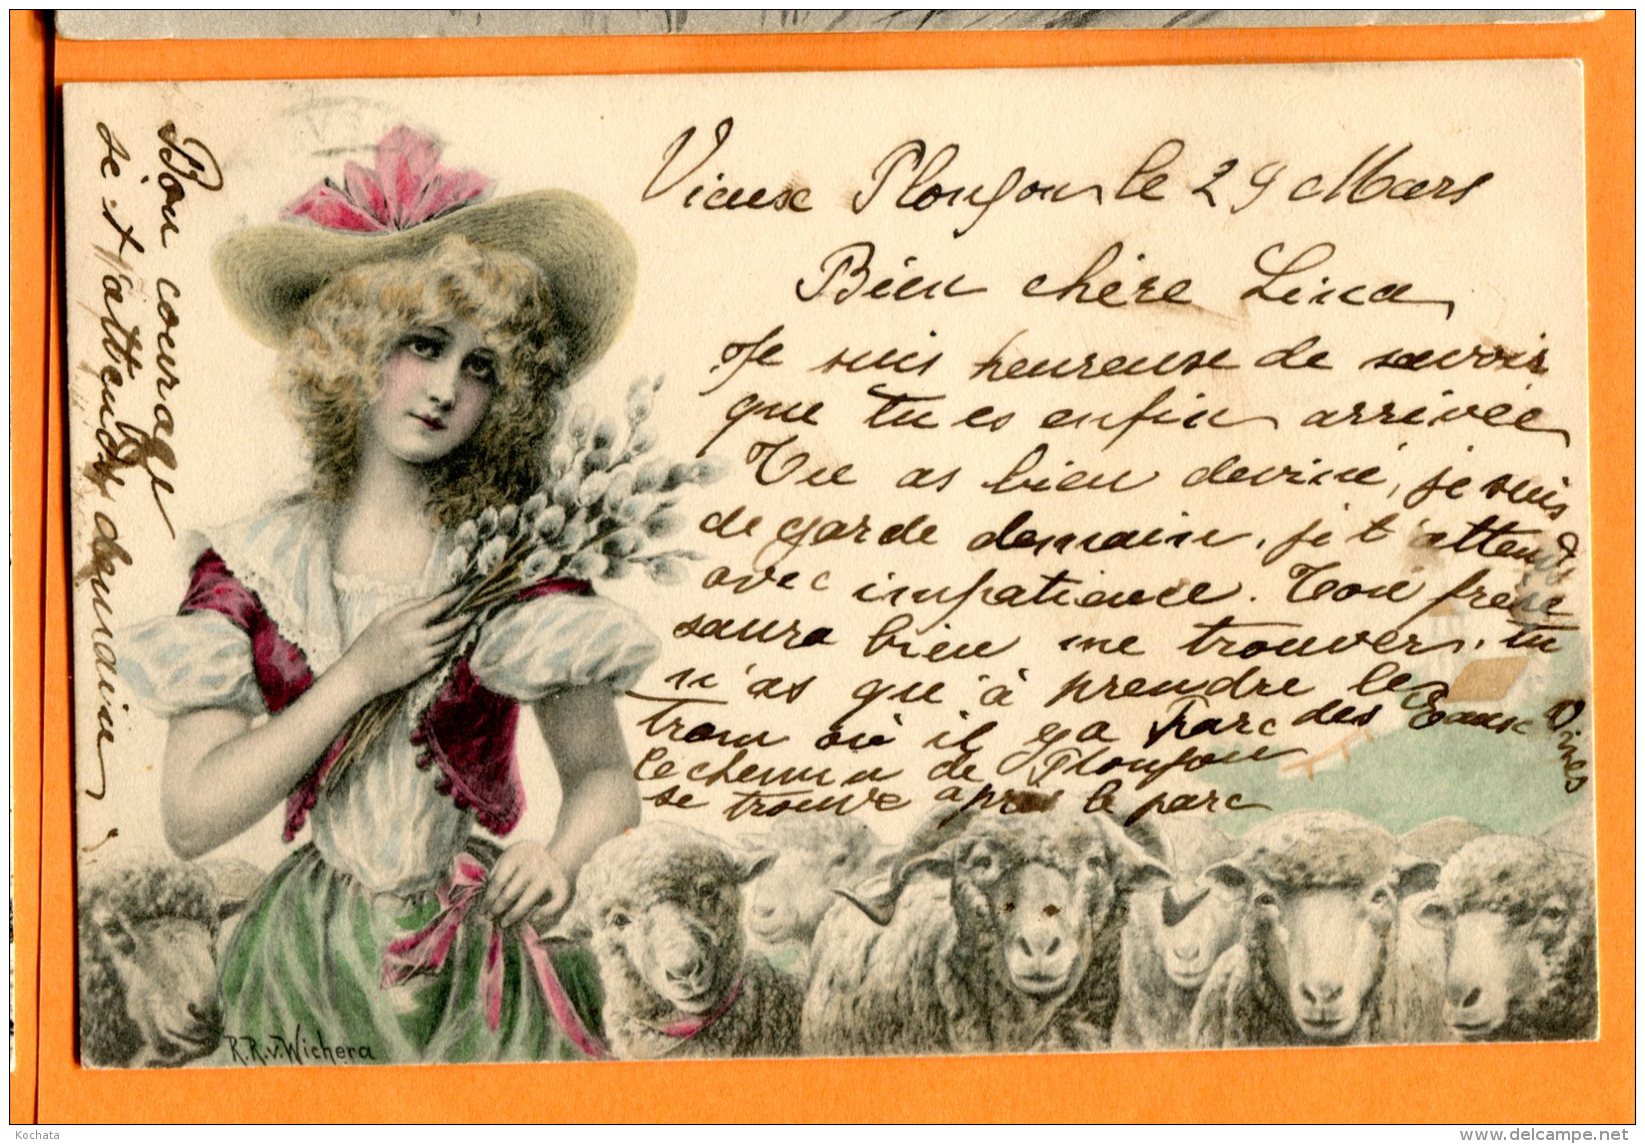 Vieux Plonjon le 29 Mars
Bien chère Lina
Je suis heureuse de savoir
que tu es enfin arrivée
Tu as bien deviné, je suis
de garde demain, je t'attends
avec impatience. Ton frère
saura bien me trouver, tu
n'as qu'à prendre le
tram où il y a Parc des Eaux Vives
le chemin de Plonjon
se trouve après le parc
Bon courage
je t'attends demain
R.R.v.Wichera
Kochata
delcampe.net